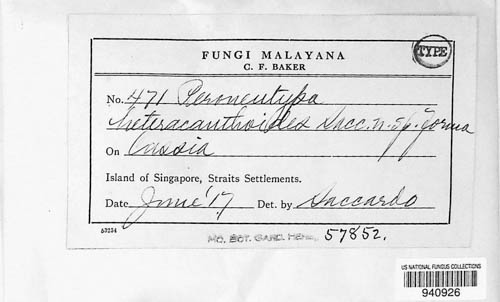 FUNGI MALAYANA
TYPE
C. F. BAKER
No. 471 Peroneutypa
heteracanthoides Sacc. n. sp. forma
On Cassia
Island of Singapore, Straits Settlements.
Date June '17 Det. by Saccardo
53234
MO. BOT. GARD. HERB. 57852.
US NATIONAL FUNGUS COLLECTIONS
940926